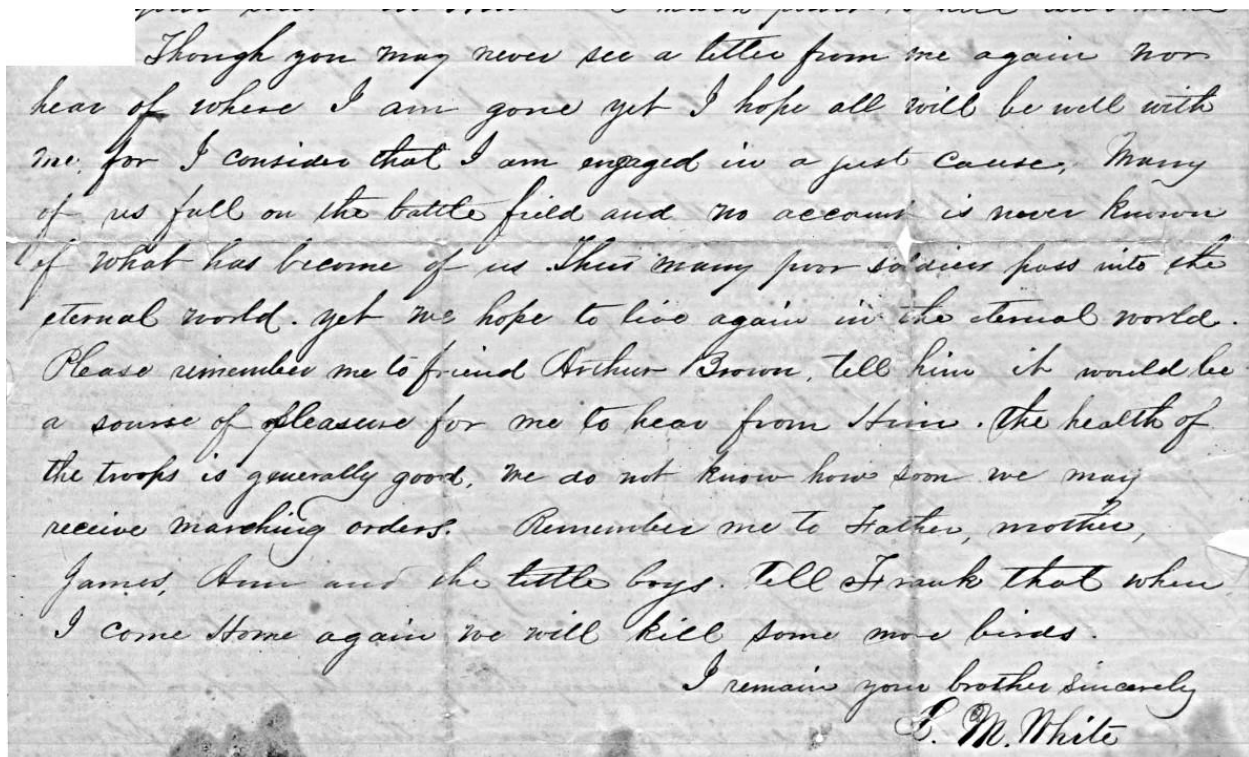 Though you may never see a letter from me again nor
hear of where I am gone yet I hope all will be well with
me, for I consider that I am engaged in a just cause, Many
of us fall on the battle field and no account is never known
of what has become of us. Thus many poor soldiers pass into the
eternal world. yet we hope to live again in the eternal world.
Please remember me to friend Arthur Brown, tell him it would be
a sourse of pleasure for me to hear from Him. The health of
the troops is generally good, we do not know how soon we may
receive marching orders. Remember me to Father, mother,
James, Ann and the little boys. tell Frank that when
I come Home again we will kill some more birds.
I remain your brother sincerely
M. White